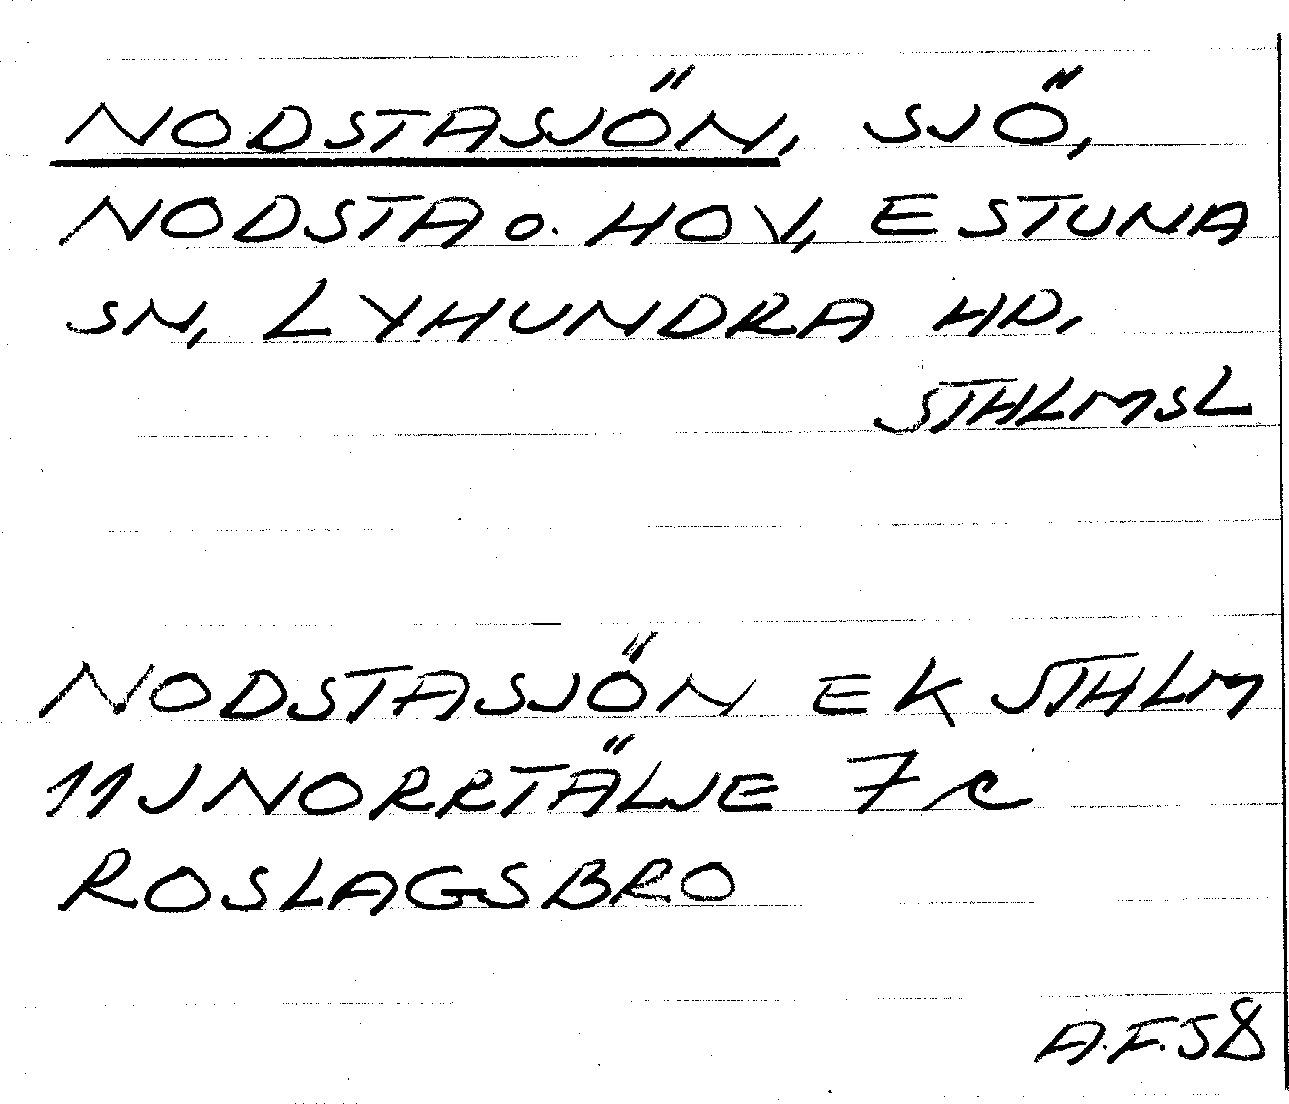 NODSTASJÖN, SJÖ,
NODSTA o. HOV, ESTUNA
SN, LYHUNDRA HD,
STHLMSL
NODSTASJÖN EK STHLM
11J NORRTÄLJE 7c
ROSLAGSBRO
A.F.58